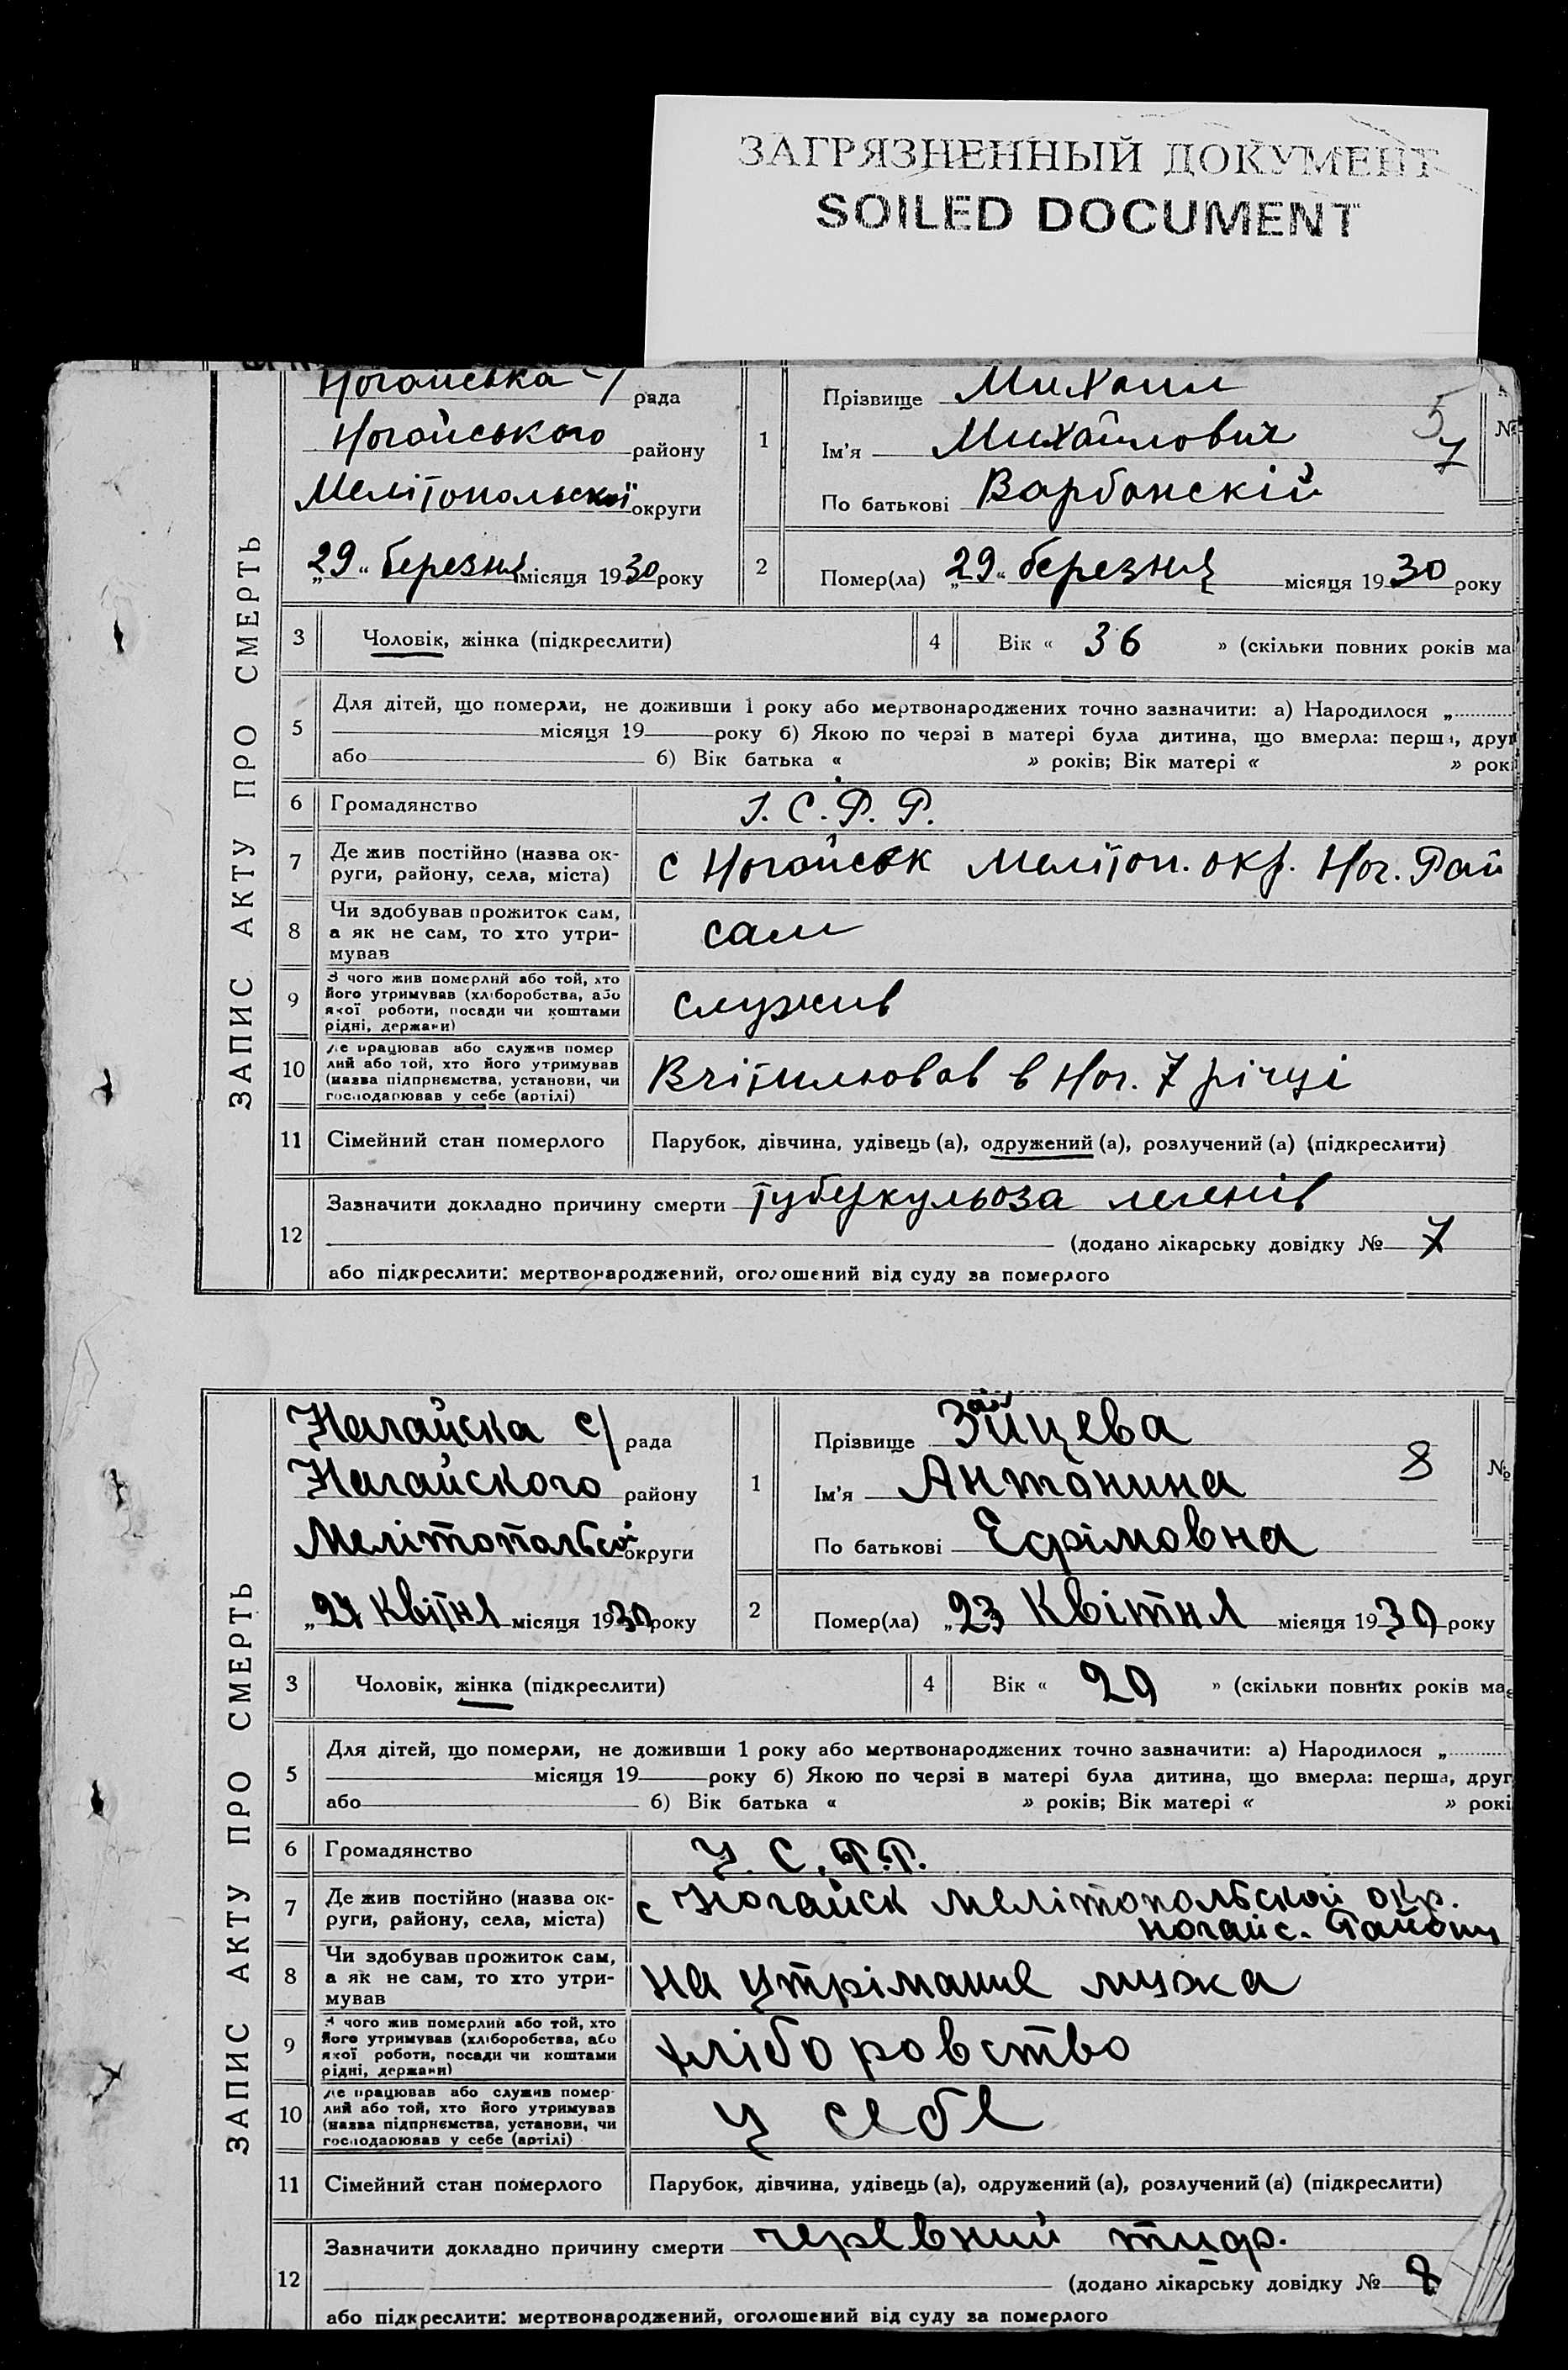 ЗАГРЯЗНЕННЫЙ ДОКУМЕНТ
SOILED DOCUMENT
ЗАПИС АКТУ ПРО СМЕРТЬ
Ногайська с/ рада
Ногайського району
Мелітопольської округи
„29“ березня місяця 1930 року
1
Прізвище Михаил
Ім'я Михайлович
По батькові Варбанскій
5
7
№
2
Помер(ла) „29“ березня місяця 1930 року
3 Чоловік, жінка (підкреслити)
4 Вік « 36 » (скільки повних років ма
5 Для дітей, що померли, не доживши 1 року або мертвонароджених точно зазначити: а) Народилося „
місяця 19 року б) Якою по черзі в матері була дитина, що вмерла: перша, друг
або б) Вік батька « » років; Вік матері « » рок
6 Громадянство У. С. Р. Р.
7 Де жив постійно (назва ок-
руги, району, села, міста) с Ногайськ Мелітоп. окр. Ног. Рай
8 Чи здобував прожиток сам,
а як не сам, то хто утри-
мував сам
9 З чого жив померлий або той, хто
його утримував (хліборобства, або
якої роботи, посади чи коштами
рідні, держави) служив
10 Де працював або служив помер
лий або той, хто його утримував
(назва підприємства, установи, чи
господарював у себе (артілі) Вчітилював в Ног. 7 річці
11 Сімейний стан померлого Парубок, дівчина, удівець (а), одружений (а), розлучений (а) (підкреслити)
12 Зазначити докладно причину смерти Туберкульоза легенів
(додано лікарську довідку № 7
або підкреслити: мертвонароджений, оголошений від суду за померлого
ЗАПИС АКТУ ПРО СМЕРТЬ
Нагайска с/ рада
Нагайского району
Мелітопольсой округи
„27 Квітня місяця 1930 року
1
Прізвище Зайцева
Ім'я Антонина
По батькові Ефрімовна
8
№
2
Помер(ла) „23 Квітня місяця 1930 року
3 Чоловік, жінка (підкреслити)
4 Вік « 29 » (скільки повних років має
5 Для дітей, що померли, не доживши 1 року або мертвонароджених точно зазначити: а) Народилося „
місяця 19 року б) Якою по черзі в матері була дитина, що вмерла: перша, друг
або б) Вік батька « » років; Вік матері « » рокі
6 Громадянство У. С. Р. Р.
7 Де жив постійно (назва ок-
руги, району, села, міста) с Ногайск Мелітопольской окр.
Ногайс. Району
8 Чи здобував прожиток сам,
а як не сам, то хто утри-
мував на утріманне мужа
9 З чого жив померлий або той, хто
його утримував (хліборобства, або
якої роботи, посади чи коштами
рідні, держави) хліборовство
10 Де працював або служив помер-
лий або той, хто його утримував
(назва підприємства, установи, чи
господарював у себе (артілі) у себе
11 Сімейний стан померлого Парубок, дівчина, удівець (а), одружений (а), розлучений (а) (підкреслити)
12 Зазначити докладно причину смерти черевний тиф.
(додано лікарську довідку № 8
або підкреслити: мертвонароджений, оголошений від суду за померлого